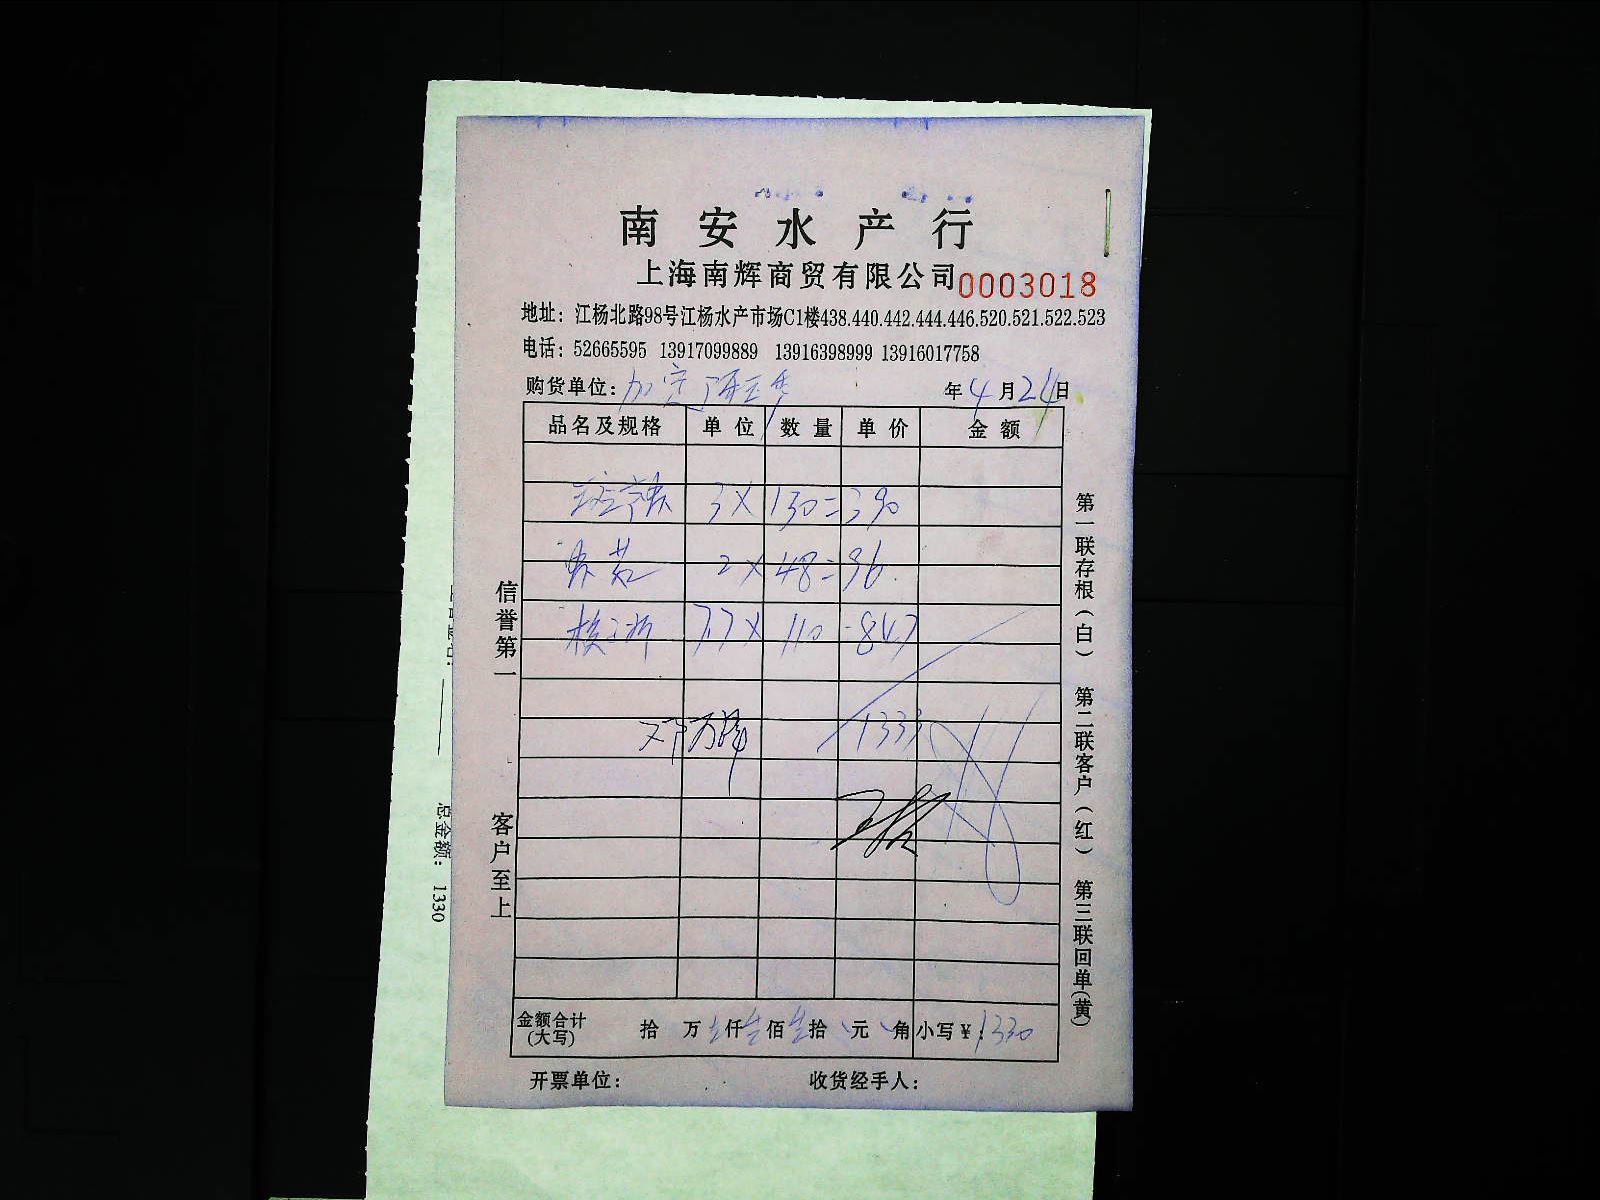 南安水产行
上海南辉商贸有限公司 0003018
地址：江杨北路98号江杨水产市场C1楼438.440.442.444.446.520.521.522.523
电话：52665595 13917099889 13916398999 13916017758
购货单位：
年4月24日
品名及规格 单位 数量 单价 金额
3 X 130=390
2 X 48=96
7.7 X 110 =847
1333
金额合计(大写) 拾 万 仟 佰 拾 元 角 小写¥：1330
开票单位： 收货经手人：
信誉第一
客户至上
第一联存根(白) 第二联客户(红) 第三联回单(黄)
总金额： 1330